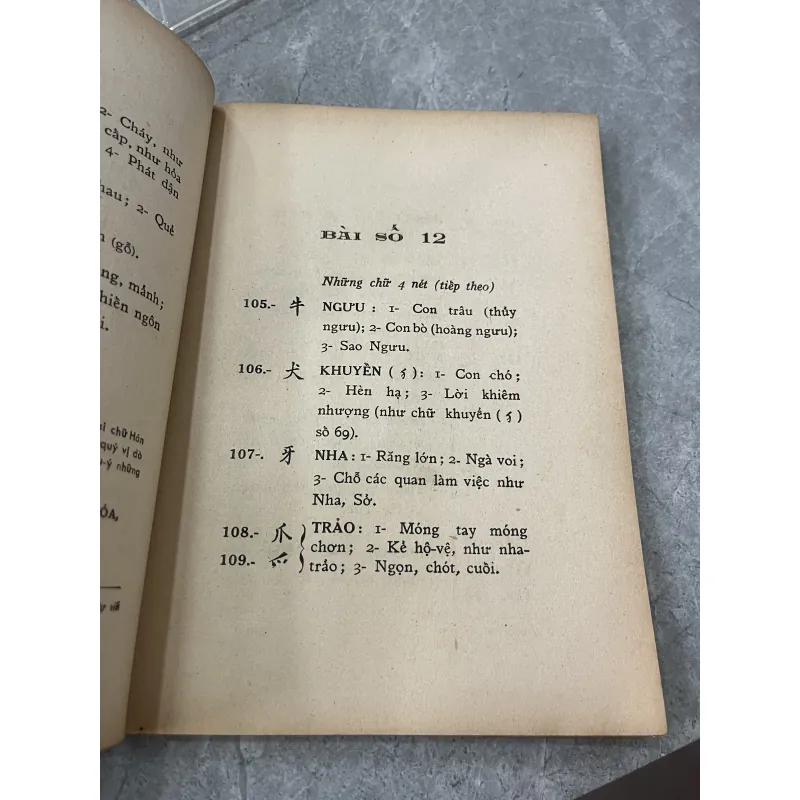 2- Cháy, như
cấp, như hỏa
4- Phát dận
hau; 2- Quẻ
(gỗ).
ng, mảnh;
hiến ngôn
i.
chữ Hán
quý vị dò
ý những
ÓA,
BÀI SỐ 12
Những chữ 4 nét (tiếp theo)
105.- 牛 NGƯU : 1- Con trâu (thủy
ngưu); 2- Con bò (hoàng ngưu);
3- Sao Ngưu.
106.- 犬 KHUYỂN (犭): 1- Con chó;
2- Hèn hạ; 3- Lời khiêm
nhượng (như chữ khuyển (犭)
số 69).
107-. 牙 NHA: 1- Răng lớn; 2- Ngà voi;
3- Chỗ các quan làm việc như
Nha, Sở.
108.- 爪 TRẢO: 1- Móng tay móng
chơn; 2- Kẻ hộ-vệ, như nha-
109.- 爫 trảo; 3- Ngọn, chót, cuối.